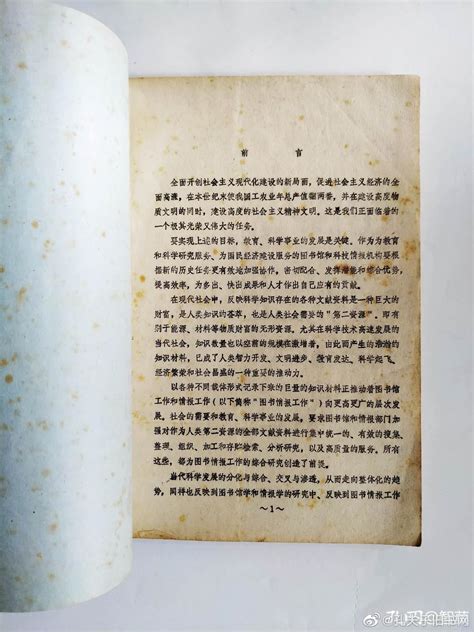 前言
全面开创社会主义现代化建设的新局面，促进社会主义经济的全
面高涨，在本世纪末使我国工农业年总产值翻两番，并在建设高度物
质文明的同时，建设高度的社会主义精神文明。这是我们正面临着的
一个极其光荣又伟大的任务。
要实现上述的目标，教育、科学事业的发展是关键。作为为教育
和科学研究服务、为国民经济建设服务的图书馆和科技情报机构要根
据新的历史任务更有效地加强协作，密切配合、发挥潜能和综合优势，
提高效率，为多出、快出成果和人才作出自己应有的贡献。
在现代社会中，反映科学知识存在的各种文献资料是一种巨大的
财富，是人类知识的荟萃，也是人类社会需要的“第二资源”。即有
别于能源、材料等物质财富的无形资源。尤其在科学技术高速发展的
当代社会，知识数量也以空前的规模在激增着，由此而产生的浩瀚的
知识材料，已成了人类智力开发、文明进步、教育发达、科学起飞、
经济繁荣和社会昌盛的一种重要的推动力。
以各种不同载体形式记录下来的巨量的知识材料正推动着图书馆
工作和情报工作（以下简称“图书情报工作”）向更高更广的层次发
展。社会的需要和教育、科学事业的发展，要求图书馆和情报部门加
强对作为人类第二资源的全部文献资料进行集中统一的、有效的搜集、
整理、组织、加工和存贮检索、分析研究，以及高质量的服务。所有
这些，都为图书情报工作的综合研究创造了前提。
当代科学发展的分化与综合、交叉与渗透，从而走向整体化的趋
势，同样也反映到图书馆学和情报学的研究中、反映到图书情报工作
～1～